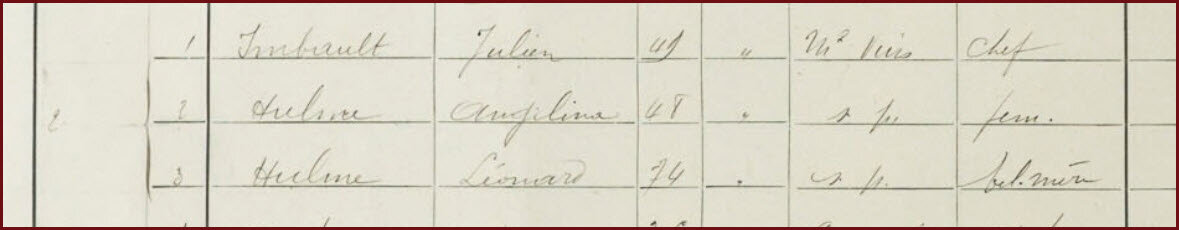 1 Imbault Julien 49 " Md Vins Chef
2 2 Hulme Angélina 48 " s p. fem.
3 Hulme Léonard 74 " s p. bel. mère